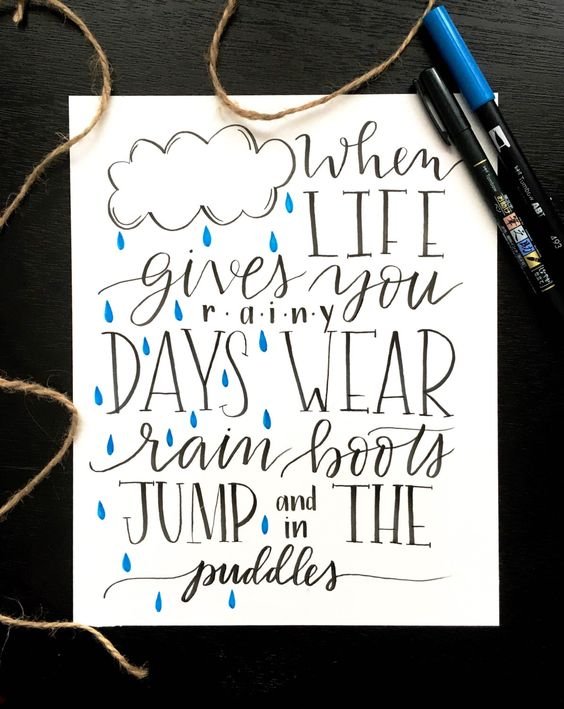 When
LIFE
gives you
r·a·i·n·y
DAYS WEAR
rain boots
JUMP and in THE
puddles
Tombow ABT
493